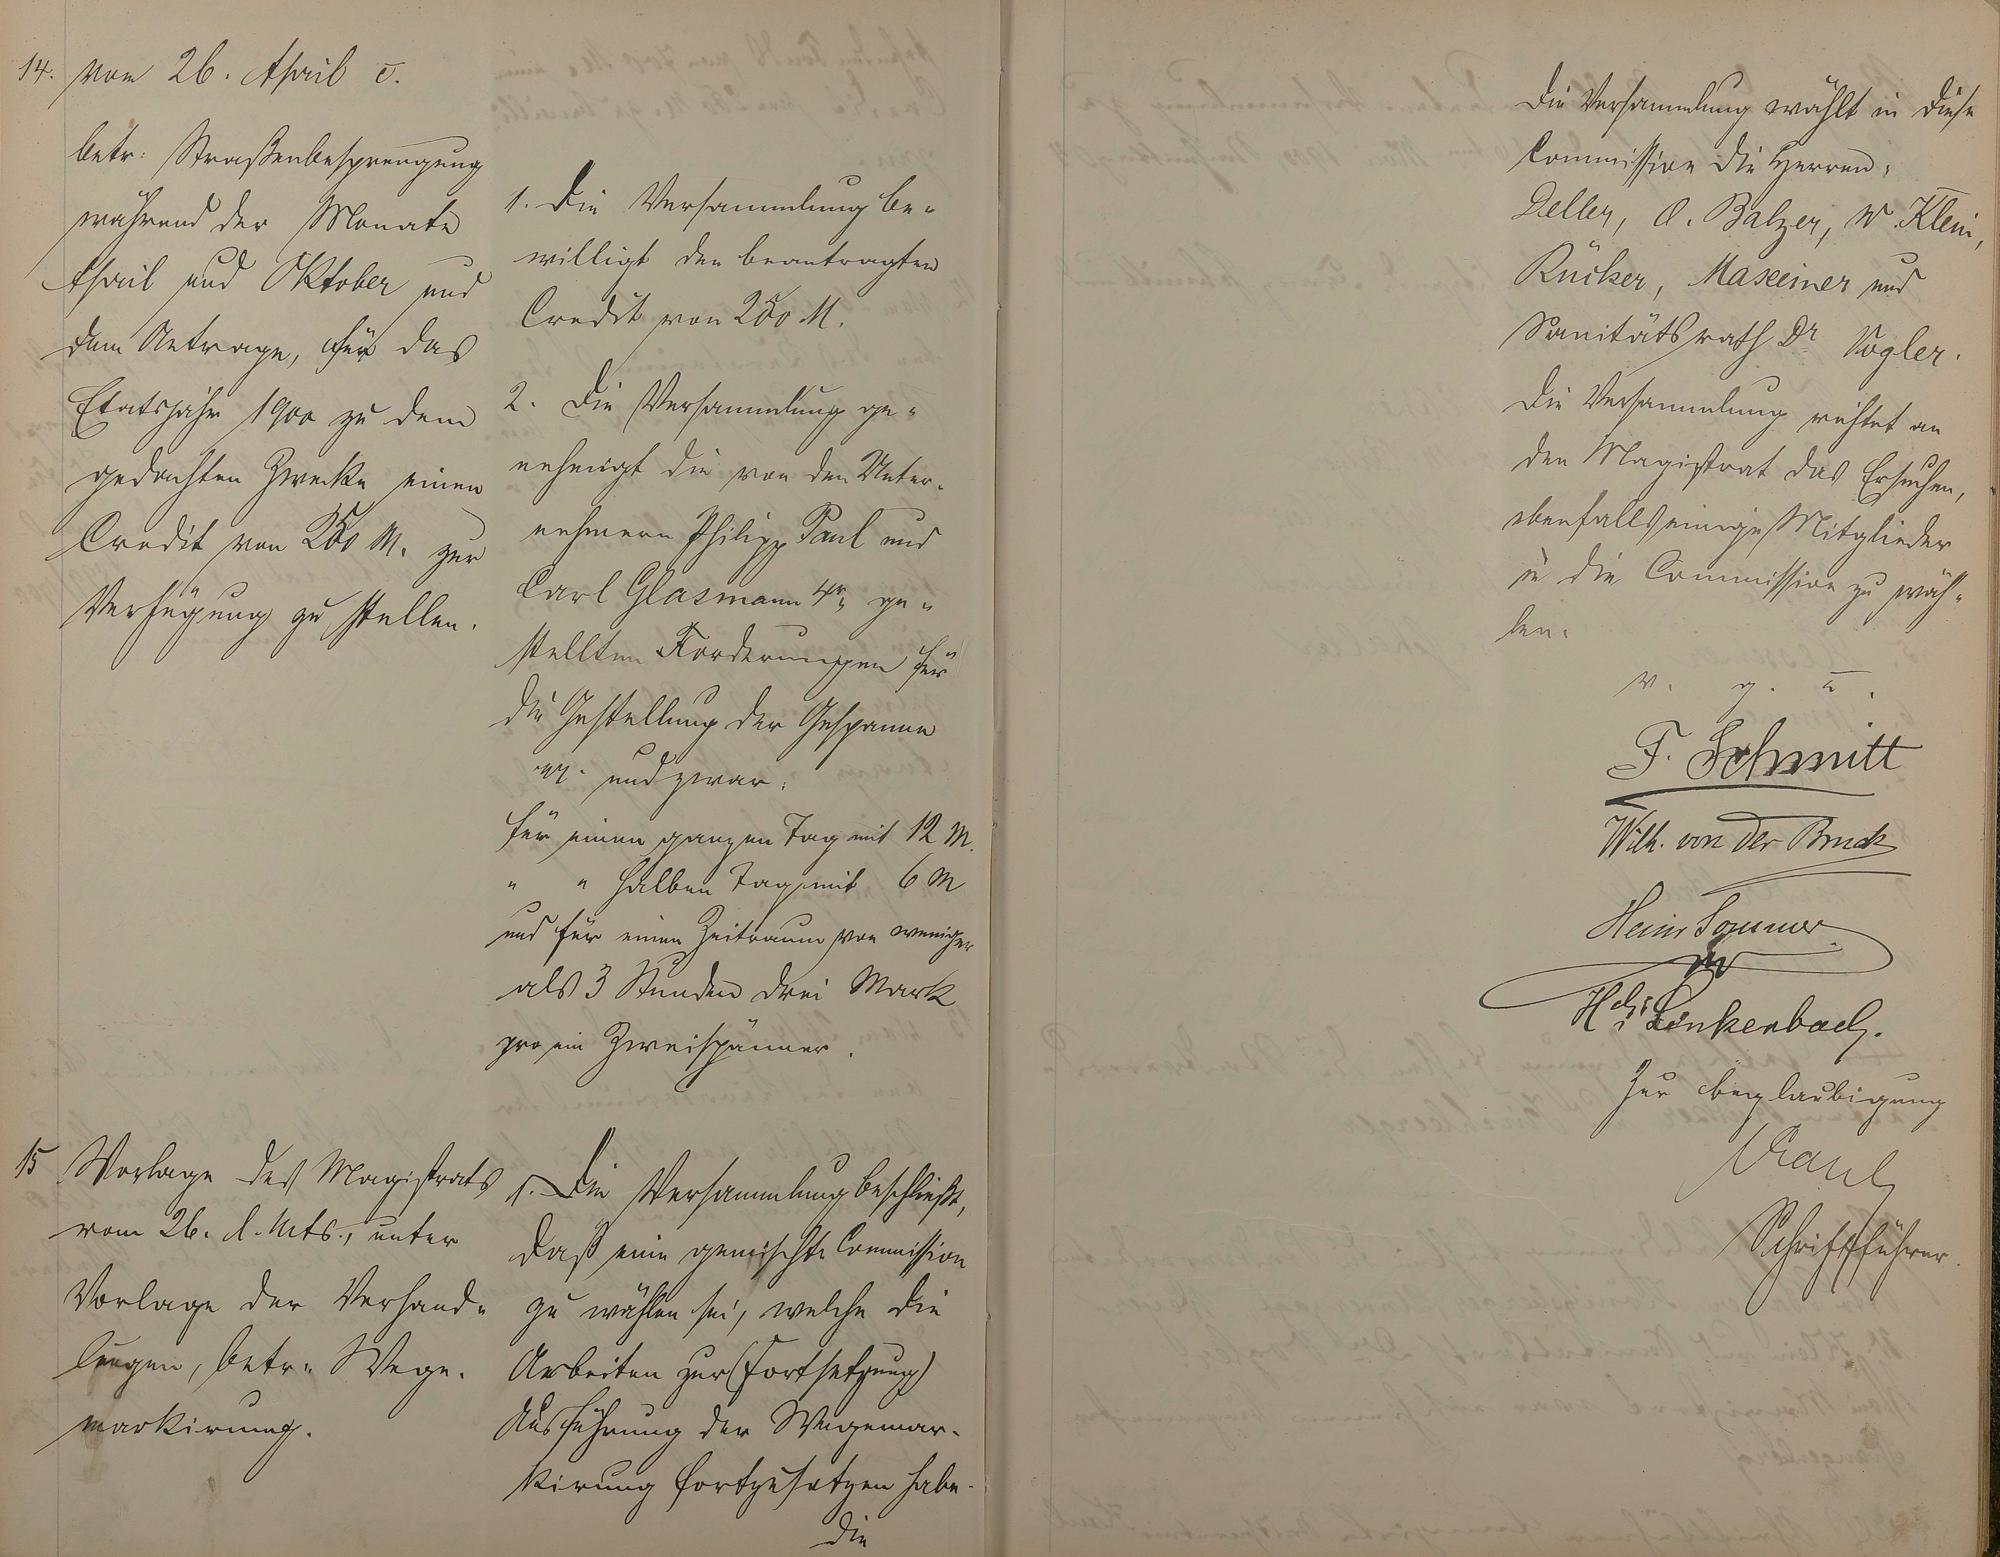 14. vom 26. April c.
betr: Straßenbesprengung
während der Monate
April und Oktober und
dem Antrage, für das
Etatsjahr 1900 zu dem
gedachten Zwecke einen
Credit von 250 M. zur
Verfügung zu stellen.
1. Die Versammlung be-
willigt den beantragten
Credit von 250 M.
2. Die Versammlung ge-
nehmigt die von den Unter-
nehmern Philipp Paul und
Carl Glasmann 4r ge-
stellten Forderungen für
die Gestellung der Gespanne
und zwar:
für einen ganzen Tag mit 12 M.
" " halben Tag mit 6 M
und für einen Zeitraum von weniger
als 3 Stunden drei Mark
pro ein Zweispänner.
15 Vorlage des Magistrats
vom 26. d. Mts., unter
Vorlage der Verhand-
lungen, betr. Wege-
markirung.
1. Die Versammlung beschließt,
daß eine gemischte Commission
zu wählen sei, welche die
Arbeiten zur (Fortsetzung)
Ausführung der Wegemar-
kirung fortzusetzen habe.
Die
Die Versammlung wählt in diese
Commission die Herren:
Deller, O. Balzer, W. Klein,
Rücker, Maxeiner und
Sanitätsrath Dr Vogler.
Die Versammlung richtet an
den Magistrat das Ersuchen,
ebenfalls einige Mitglieder
in die Commission zu wäh-
len.
v. g. u.
F. Schmitt
Wilh. von der Bruck
Heinr Sommer
Hch. Linkenbach.
Zur Beglaubigung
Kaul
Schriftführer.